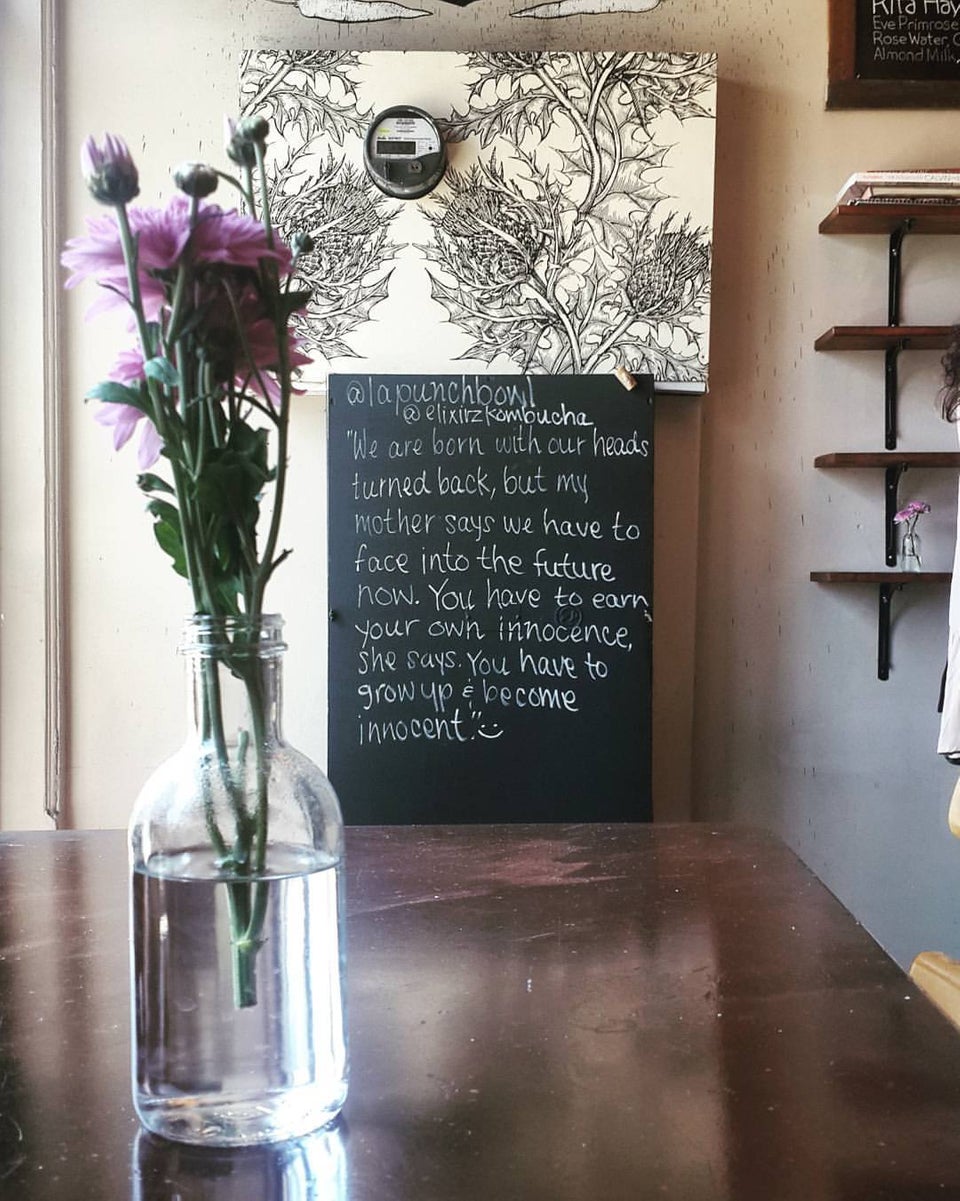 Rita Hay
Eve Primrose
Rose Water, C
Almond Milk,
@lapunchbowl
@elixirzkombucha
"We are born with our heads
turned back, but my
mother says we have to
face into the future
now. You have to earn
your own innocence,
she says. You have to
grow up & become
innocent." :)